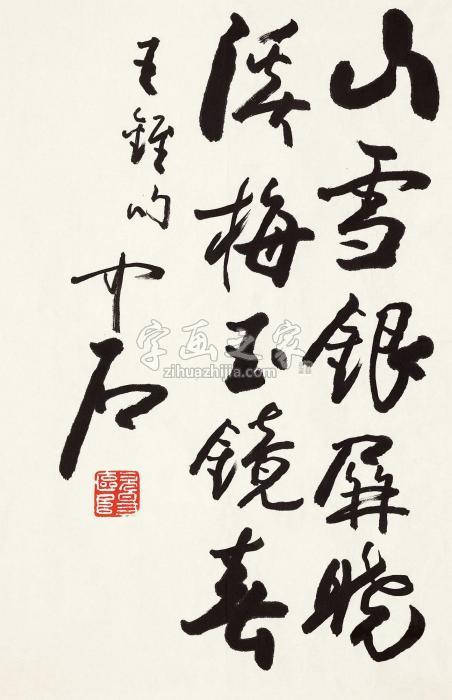 山雪银屏晓
溪梅玉镜春
王锥句
中石
字画之家
zihuazhijia.com